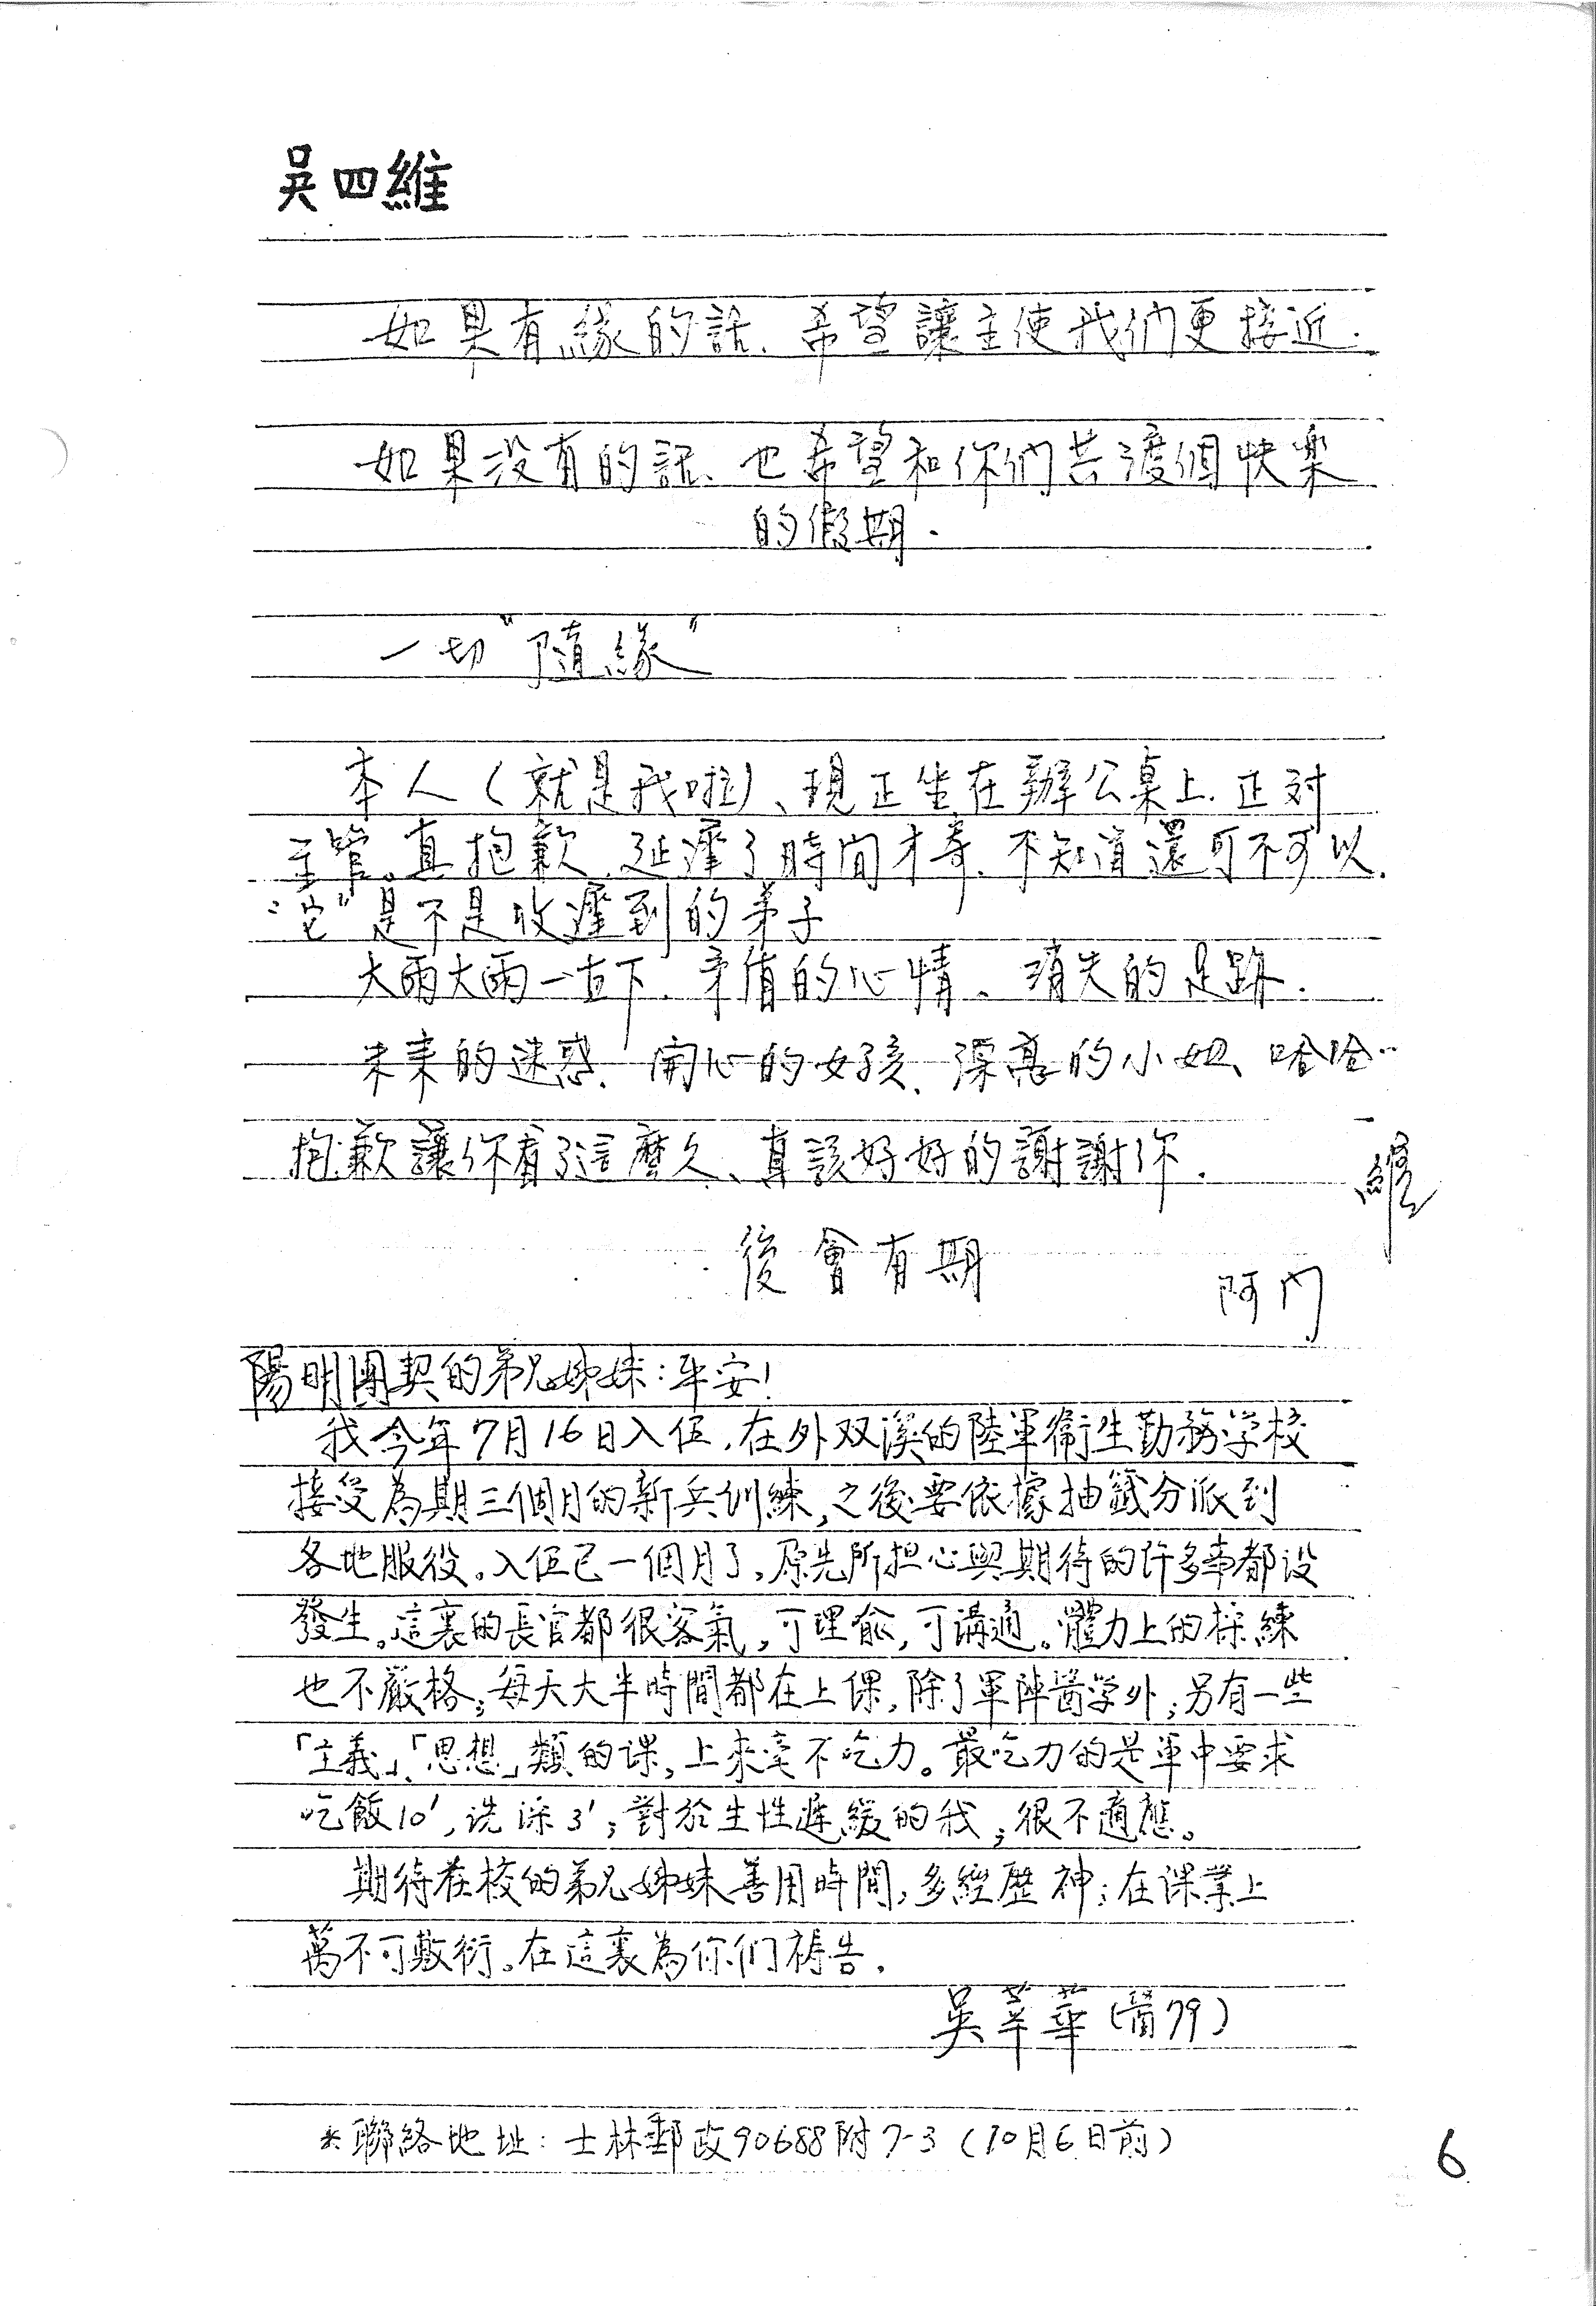 吳四維
如果有緣的話、希望讓主使我們更接近.
如果沒有的話、也希望和你們共渡個快樂
的假期.
一切"隨緣"
本人(就是我啦)、現正坐在辦公桌上.正对
主管。真抱歉.延遲了時間才寄.不知道還可不可以.
"它"是不是收遲到的弟子
大雨大雨一直下.矛盾的心情、消失的足跡.
未来的迷惑.開心的女孩、深髮的小妞、哈哈…
抱歉讓你看了這麼久、真該好好的謝謝你.
維
後會有期
阿門
陽明團契的弟兄姊妹:平安!
我今年7月16日入伍,在外双溪的陸軍衛生勤務学校
接受為期三個月的新兵训練,之後要依據抽籤分派到
各地服役。入伍已一個月了,原先所担心與期待的许多事都没
發生。這裏的長官都很客氣,可理俞,可溝通。體力上的操練
也不嚴格;每天大半時間都在上課,除了軍陣醫学外;另有一些
「主義」、「思想」類的课,上來毫不吃力。最吃力的是軍中要求
吃飯10',洗澡3';對於生性遲緩的我,很不適應。
期待在校的弟兄姊妹善用時間,多經歷神;在课業上
萬不可敷衍。在這裏為你们禱告.
吳萃華(醫79)
*聯絡地址:士林郵政90688附7-3(10月6日前)
6